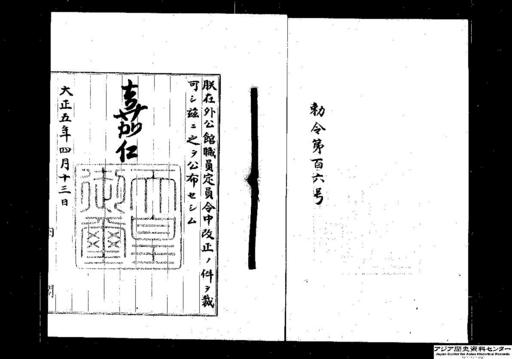 勅令第百六号
朕在外公館職員定員令中改正ノ件ヲ裁
可シ茲ニ之ヲ公布セシム
嘉仁
天皇御璽
大正五年四月十三日
内閣
アジア歴史資料センター
Japan Center for Asian Historical Records